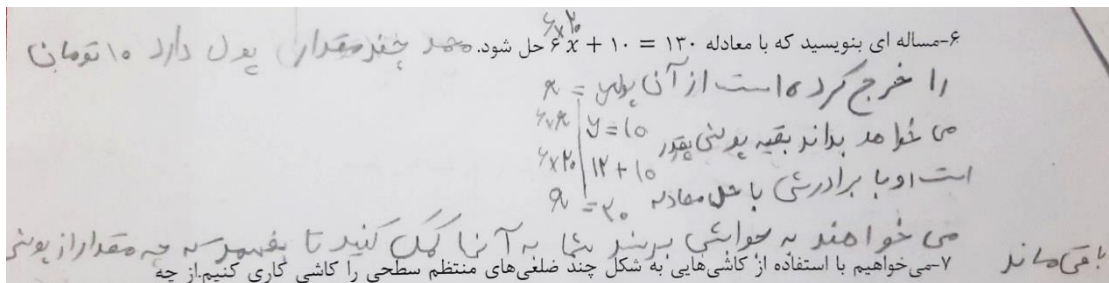 ۶×۲۰
۶-مساله ای بنویسید که با معادله ۱۳۰ = ۱۰ + ۶x حل شود. محمد چند مقدار پول دارد ۱۰ تومان
را خرج کرده است از آن پول = x
۶×x y = ۱۰
می خواهد بداند بقیه پولش چقدر
۶×۲۰ ۱۲ + ۱۰
است او با برادرش با حل معادله
x = ۲۰
می خواهند به جوابش برسند شما به آنها کمک کنید تا بفهمد که چه مقدار از پولش
باقی ماند
۷-می‌خواهیم با استفاده از کاشی‌هایی به شکل چند ضلعی‌های منتظم سطحی را کاشی کاری کنیم.از چه